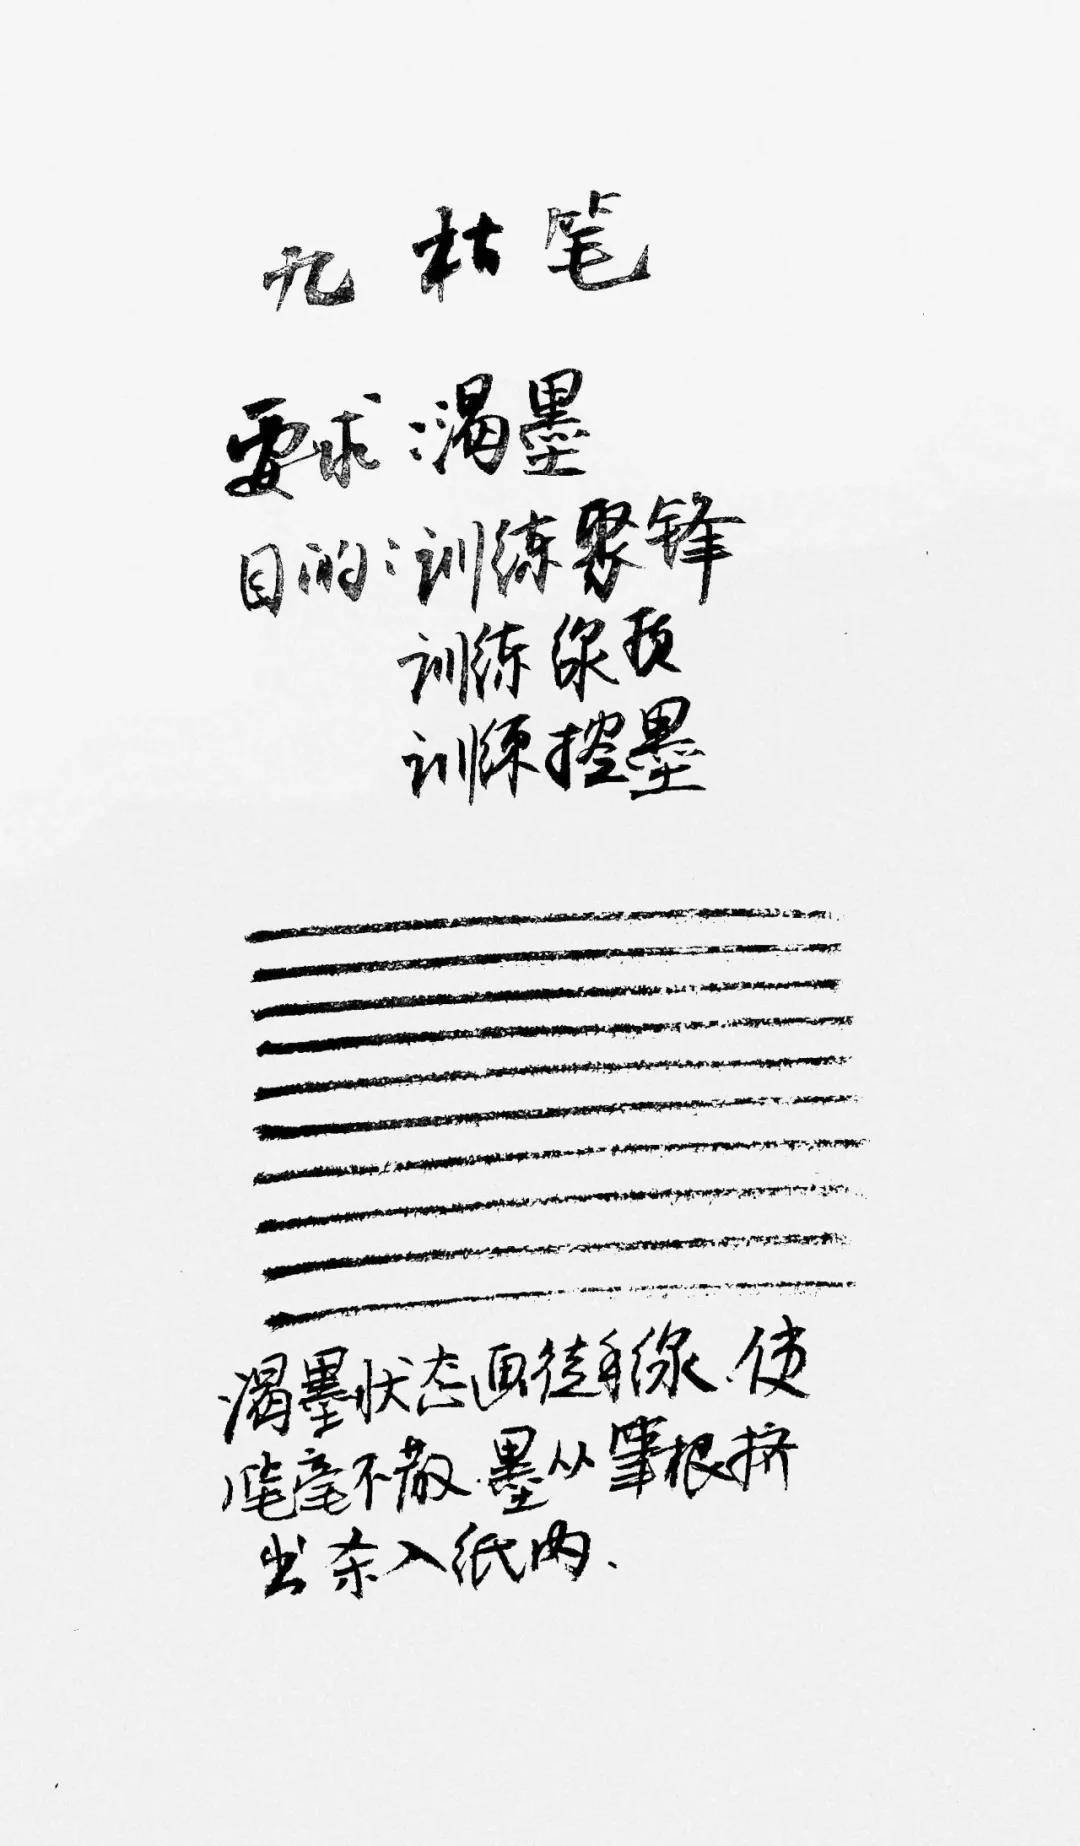 九 枯笔
要求:渴墨
目的:训练聚锋
训练线质
训练控墨
渴墨状态画徒手线.使
笔毫不散.墨从筆根挤
出杀入纸内.